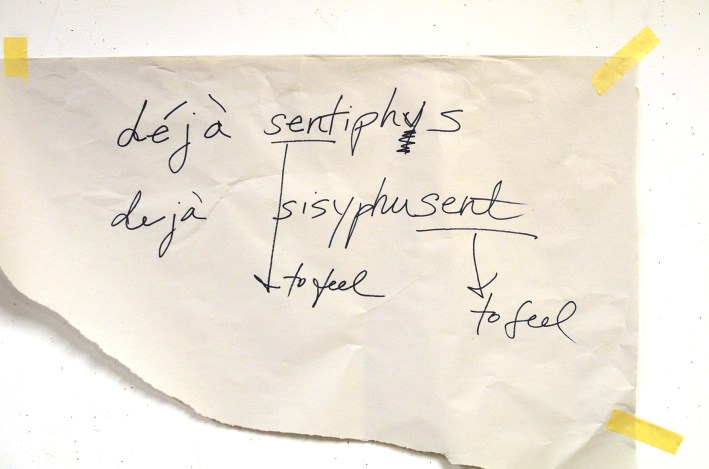 déjà sentiphys
dejà sisyphusent
to feel
to feel